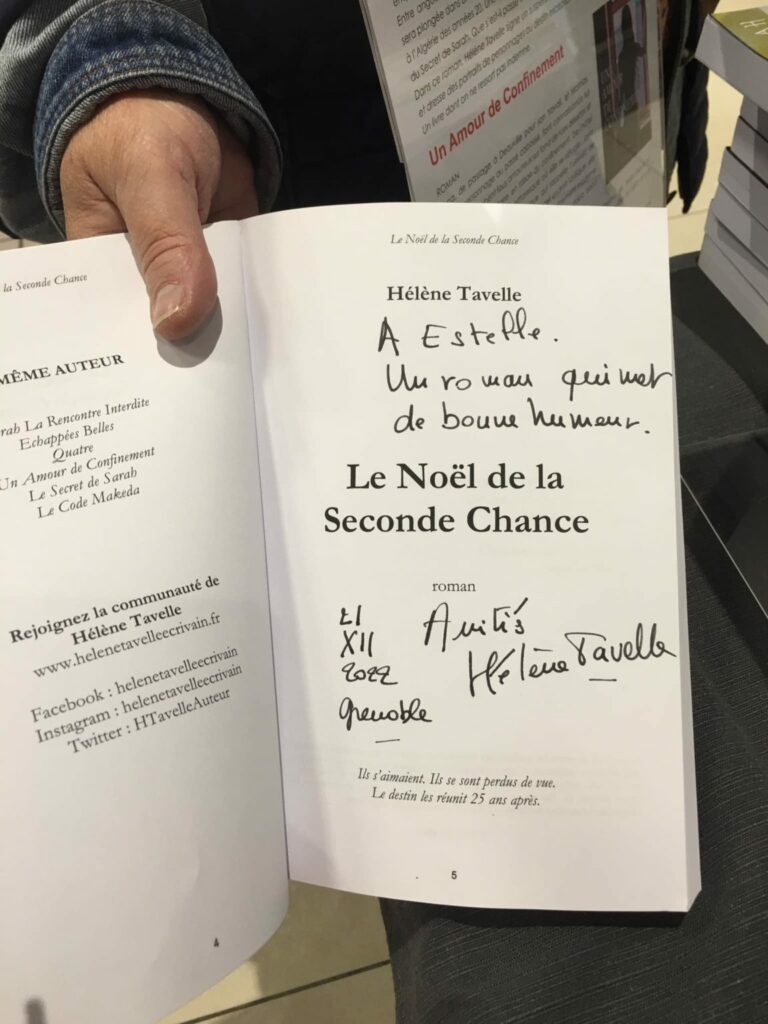 Entre
sera plongée dans
à l'Algérie des années 20.
du Secret de Sarah. Que s'est-il passé
Dans ce roman, Hélène Tavelle signe un
et dresse des portraits de personnages au destin
Un livre dont on ne ressort pas indemne.
Un Amour de Confinement
ROMAN
de passage à Deauville pour son travail, et
la Seconde Chance
MÊME AUTEUR
rah La Rencontre Interdite
Echappées Belles
Quatre
Un Amour de Confinement
Le Secret de Sarah
Le Code Makeda
Rejoignez la communauté de
Hélène Tavelle
www.helenetavelleecrivain.fr
Facebook : helenetavelleecrivain
Instagram : helenetavelleecrivain
Twitter : HTavelleAuteur
4
Le Noël de la Seconde Chance
Hélène Tavelle
A Estelle.
Un roman qui met
de bonne humeur.
Le Noël de la
Seconde Chance
roman
21
XII
2022
Grenoble
Amitiés
Hélène Tavelle
Ils s'aimaient. Ils se sont perdus de vue.
Le destin les réunit 25 ans après.
5